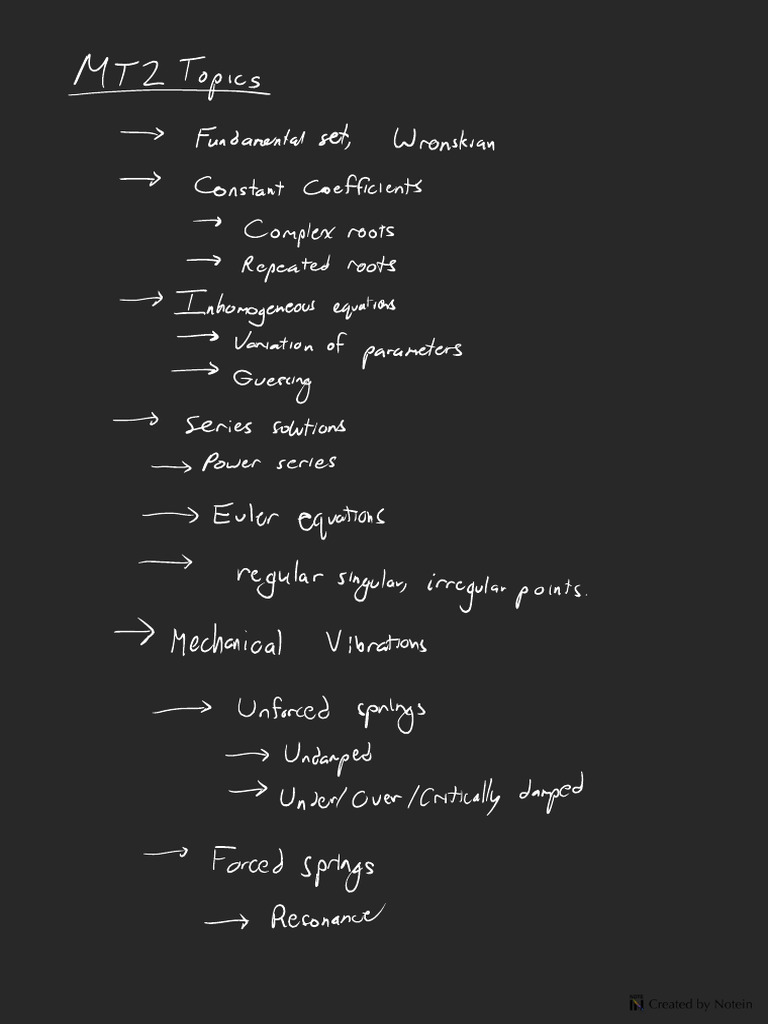 MT2 Topics
→ Fundamental set, Wronskian
→ Constant Coefficients
→ Complex roots
→ Repeated roots
→ Inhomogeneous equations
→ Variation of parameters
→ Guessing
→ Series solutions
→ Power series
→ Euler equations
→ regular singular, irregular points.
→ Mechanical Vibrations
→ Unforced springs
→ Undamped
→ Under/Over/Critically damped
→ Forced springs
→ Resonance
Created by Notein